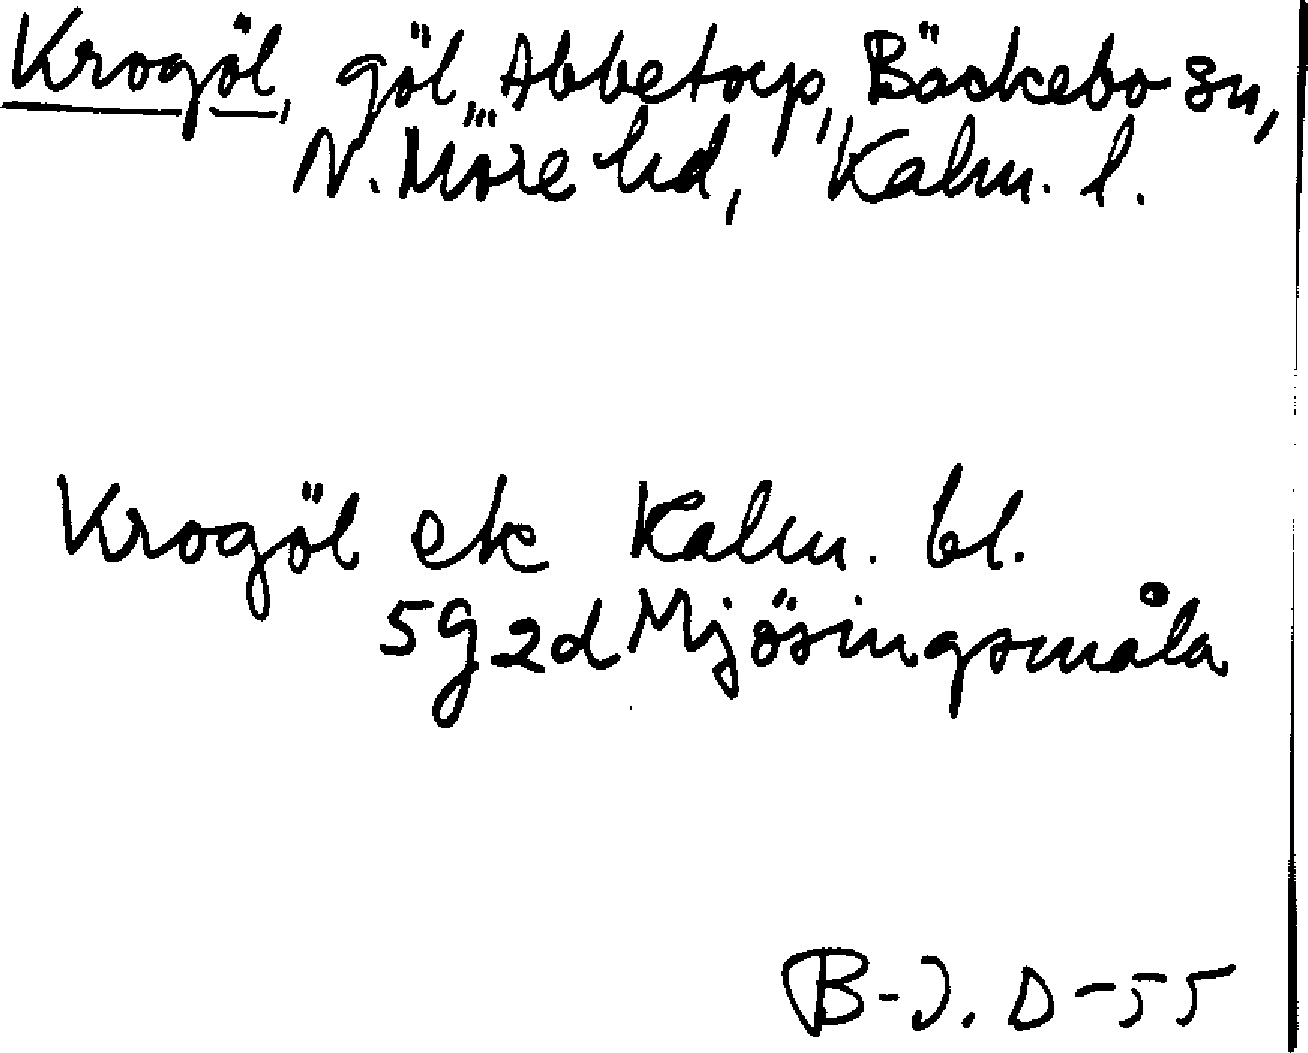 Krogöl, göl, Abbetorp, Bäckebo sn,
N. Möre hd, Kalm. l.
Krogöl ek Kalm. bl.
5g2d Mjösingsmåla
B-J. D-55